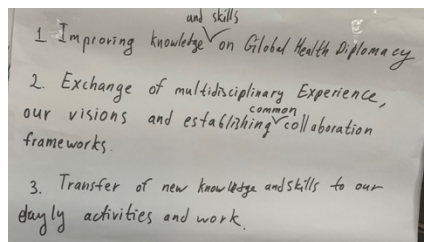 1 Improving knowledge and skills on Global Health Diplomacy
2. Exchange of multidisciplinary Experience,
our visions and establishing common collaboration
frameworks.
3. Transfer of new knowledge and skills to our
dayly activities and work.